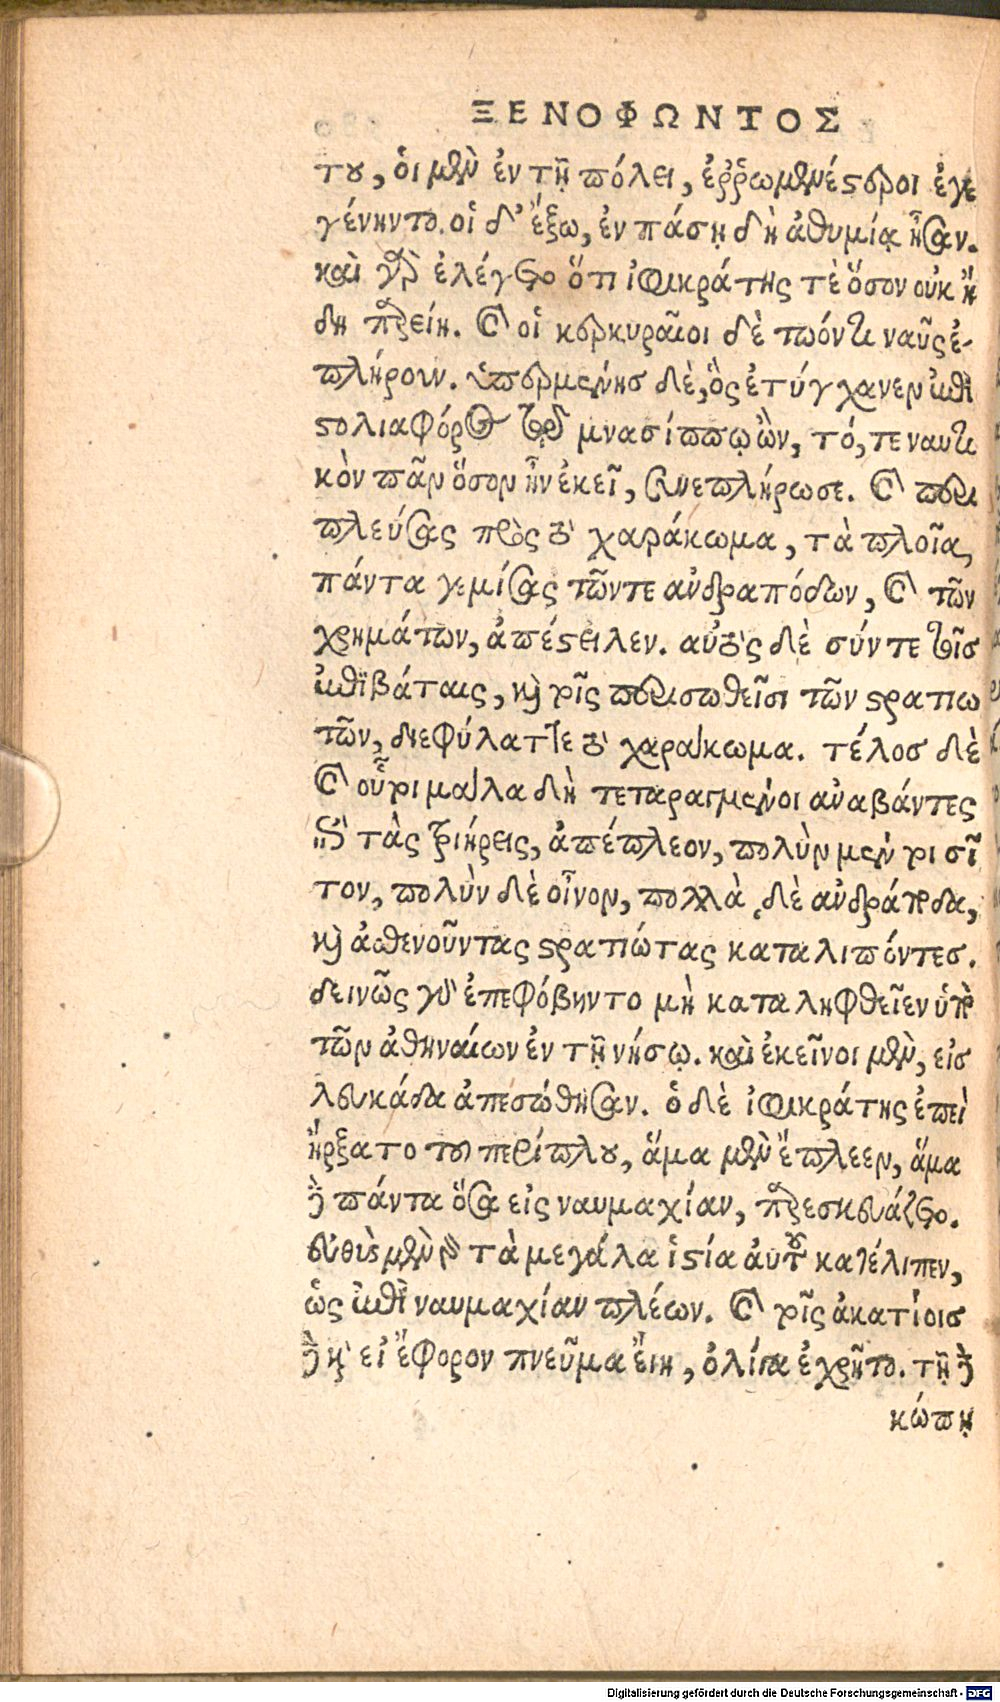 ΞΕΝΟΦΩΝΤΟΣ
του, οἱ μὲν ἐν τῇ πόλει, ἐῤῥωμενέστεροι ἐγε
γένηντο. οἱ δ' ἔξω, ἐν πάσῃ δὴ ἀθυμίᾳ ἦσαν.
καὶ γὰρ ἐλέγετο ὅτι ἰφικράτης τὲ ὅσον οὐκ ἤ
δη παρείη. καὶ οἱ κερκυραῖοι δὲ τῷόντι ναῦς ἐ-
πλήρουν. ὑπερμένης δὲ, ὃς ἐτύγχανεν ἐπι
στολιαφόρος τῷ μνασίππῳ ὢν, τό, τε ναυτι
κὸν πᾶν ὅσον ἦν ἐκεῖ, συνεπλήρωσε. καὶ περι
πλεύσας πρὸς τὸ χαράκωμα, τὰ πλοῖα,
πάντα γεμίσας τῶντε ἀνδραπόδων, καὶ τῶν
χρημάτων, ἀπέστειλεν. αὐτὸς δὲ σύντε τοῖς
ἐπιβάταις, καὶ τοῖς περισωθεῖσι τῶν στρατιω
τῶν, διεφύλαττε τὸ χαράκωμα. τέλος δὲ
καὶ οὗτοι μάλα δὴ τεταραγμένοι ἀναβάντες
ἐπὶ τὰς τριήρεις, ἀπέπλεον, πολὺν μὲν τοι σῖ
τον, πολὺν δὲ οἶνον, πολλὰ δὲ ἀνδράποδα,
καὶ ἀσθενοῦντας στρατιώτας καταλιπόντες.
δεινῶς γὰρ ἐπεφόβηντο μὴ καταληφθεῖεν ὑπὸ
τῶν ἀθηναίων ἐν τῇ νήσῳ. καὶ ἐκεῖνοι μὲν, εἰς
λευκάδα ἀπεσώθησαν. ὁ δὲ ἰφικράτης ἐπεὶ
ἤρξατο τοῦ περίπλου, ἅμα μὲν ἔπλεεν, ἅμα
δὲ πάντα ὅσα εἰς ναυμαχίαν, παρεσκευάζετο.
εὐθὺς μὲν γὰρ τὰ μεγάλα ἱστία αὐτοῦ κατέλιπεν,
ὡς ἐπὶ ναυμαχίαν πλέων. καὶ τοῖς ἀκατίοις
δὲ καὶ εἰ ἔφορον πνεῦμα εἴη, ὀλίγα ἐχρῆτο. τῇ δὲ
κώπῃ
Digitalisierung gefördert durch die Deutsche Forschungsgemeinschaft - DFG